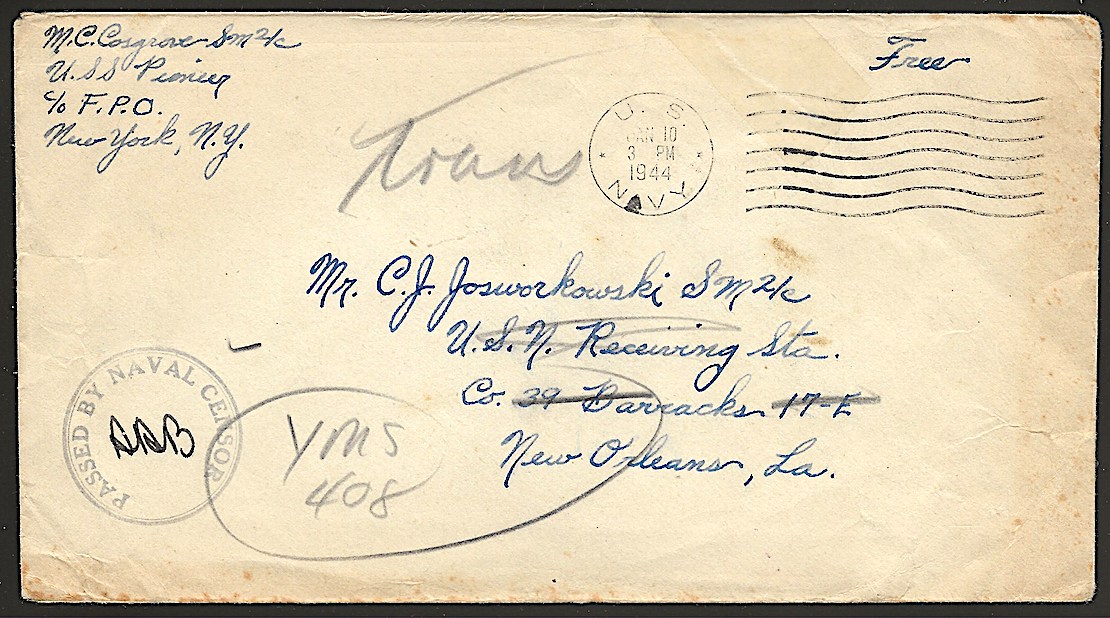 M.C. Cosgrove Sm2/c
U.S.S Pioneer
c/o F.P.O.
New York, N.Y.
Free
Trans
U.S. NAVY
JAN 10
3 PM
1944
Mr. C.J. Josworkowski SM2/c
U.S.N. Receiving Sta.
Co. 39 Barracks 17-E
New Orleans, La.
PASSED BY NAVAL CENSOR
YMS
408